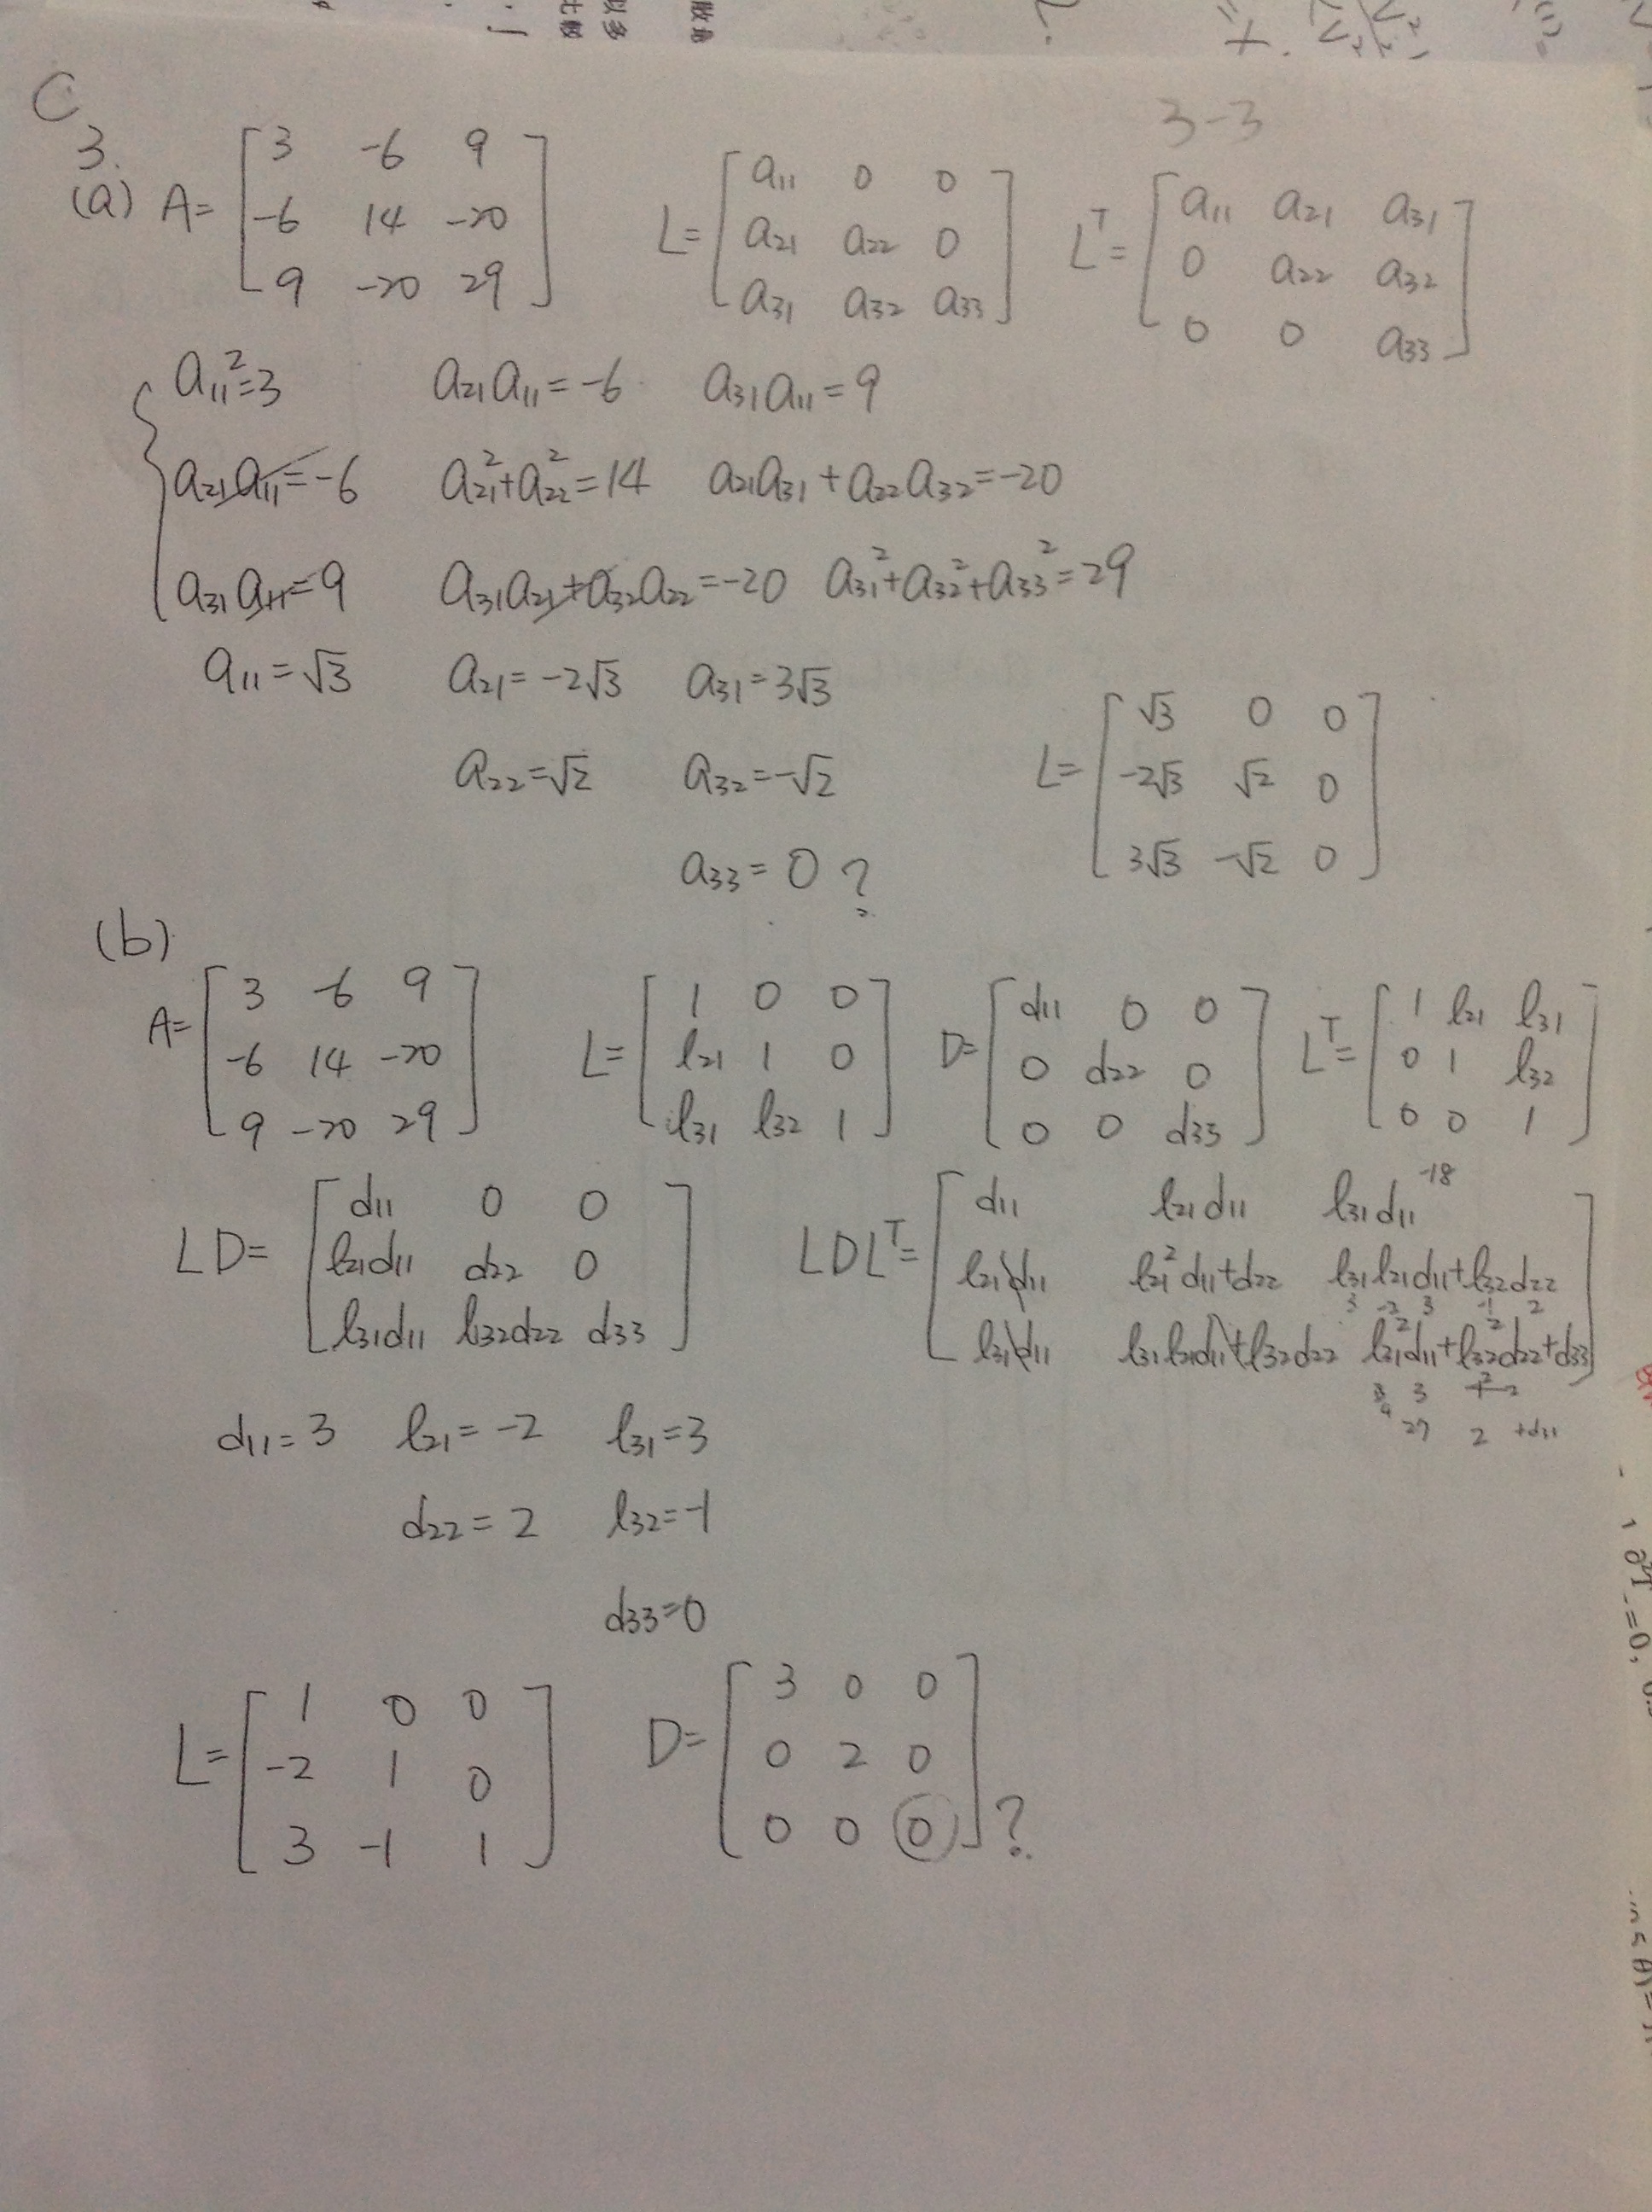 C
3-3
3.
(a) A= [ 3 -6 9 ; -6 14 -20 ; 9 -20 29 ] L= [ a11 0 0 ; a21 a22 0 ; a31 a32 a33 ] L^T= [ a11 a21 a31 ; 0 a22 a32 ; 0 0 a33 ]
a11²=3 a21a11=-6 a31a11=9
a21a11=-6 a21²+a22²=14 a21a31+a22a32=-20
a31a11=9 a31a21+a32a22=-20 a31²+a32²+a33²=29
a11=√3 a21=-2√3 a31=3√3
a22=√2 a32=-√2
a33=0 ?
L= [ √3 0 0 ; -2√3 √2 0 ; 3√3 -√2 0 ]
(b)
A= [ 3 -6 9 ; -6 14 -20 ; 9 -20 29 ] L= [ 1 0 0 ; l21 1 0 ; l31 l32 1 ] D= [ d11 0 0 ; 0 d22 0 ; 0 0 d33 ] L^T= [ 1 l21 l31 ; 0 1 l32 ; 0 0 1 ]
LD= [ d11 0 0 ; l21d11 d22 0 ; l31d11 l32d22 d33 ] LDL^T= [ d11 l21d11 l31d11 ; l21d11 l21²d11+d22 l31l21d11+l32d22 ; l31d11 l31l21d11+l32d22 l31²d11+l32²d22+d33 ]
-18
3 -2 3 -1 2
27 2 +d31
d11=3 l21=-2 l31=3
d22=2 l32=-1
d33=0
L= [ 1 0 0 ; -2 1 0 ; 3 -1 1 ] D= [ 3 0 0 ; 0 2 0 ; 0 0 0 ] ?